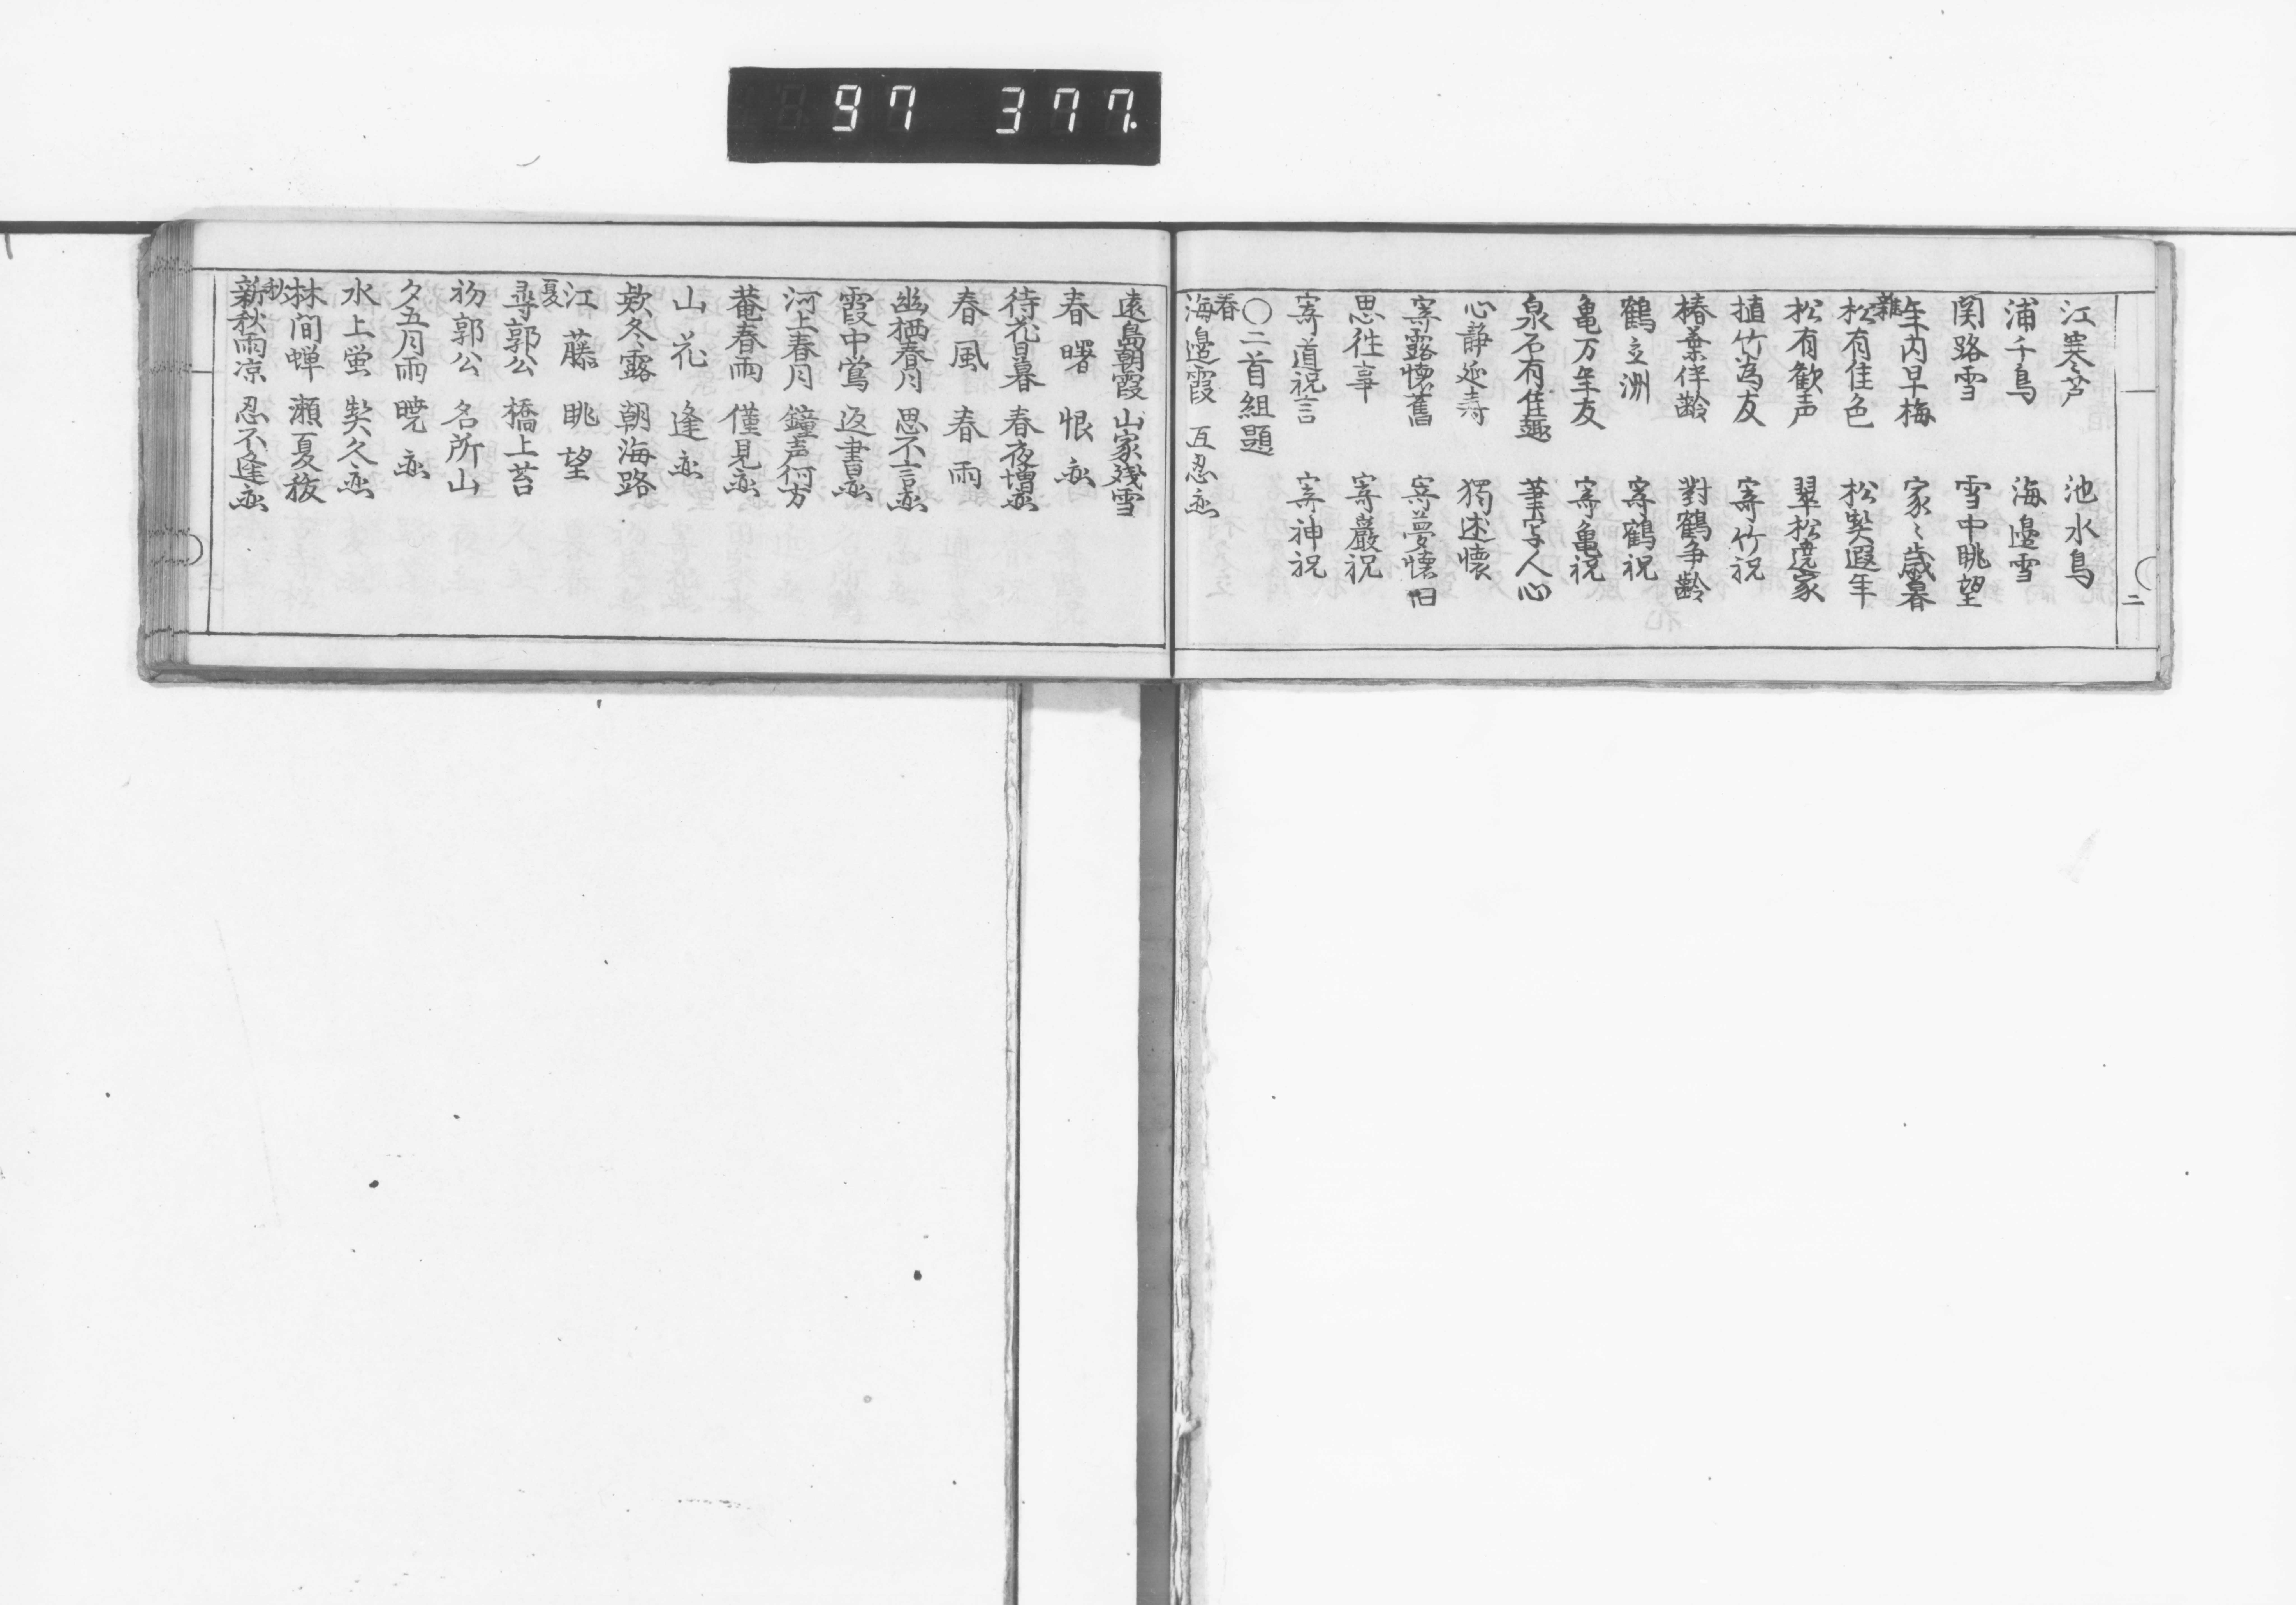 97 377.
二
江寒芦 池水鳥
浦千鳥 海邉雪
関路雪 雪中眺望
年内早梅 家〻歳暮
雜
松有佳色 松契遐年
松有歓声 翠松遶家
植竹為友 寄竹祝
椿葉伴齢 對鶴争齢
鶴立洲 寄鶴祝
亀万年友 寄亀祝
泉石有佳趣 筆写人心
心静延寿 獨述懐
寄露懐舊 寄夢懐旧
思往事 寄巖祝
寄道祝言 寄神祝
〇二首組題
春
海邉霞 互忍恋
遠島朝霞 山家残雪
春曙 恨恋
待花日暮 春夜増恋
春風 春雨
幽栖春月 思不言恋
霞中鴬 返書恋
河上春月 鐘声何方
菴春雨 僅見恋
山花 逢恋
欵冬露 朝海路
江藤 眺望
夏
尋郭公 橋上苔
初郭公 名所山
夕五月雨 暁恋
水上蛍 契久恋
林間蝉 瀬夏祓
秋
新秋雨凉 忍不逢恋